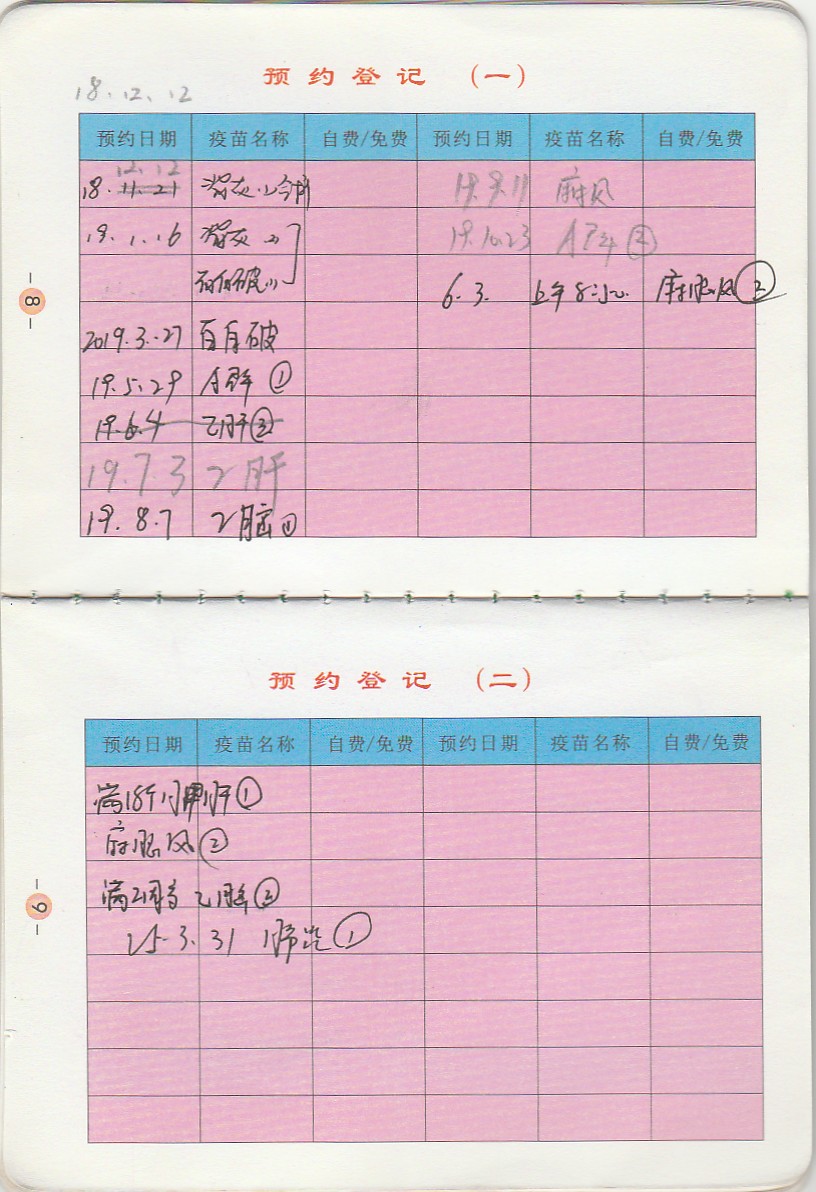 预约登记 (一)
18.12.12
预约日期 疫苗名称 自费/免费 预约日期 疫苗名称 自费/免费
12.12
18.11.21 脊灰 19.9.11 麻风
19.1.16 脊灰 19.10.23 A群②
百白破 6.3. 上午8 麻腮风②
2019.3.27 百白破
19.5.29 A群①
19.6.4 乙肝③
19.7.3 乙肝
19.8.7 乙脑①
- 8 -
预约登记 (二)
预约日期 疫苗名称 自费/免费 预约日期 疫苗名称 自费/免费
满18个月 甲肝①
麻腮风②
满2周岁 乙脑②
25.3.31 ①
- 9 -